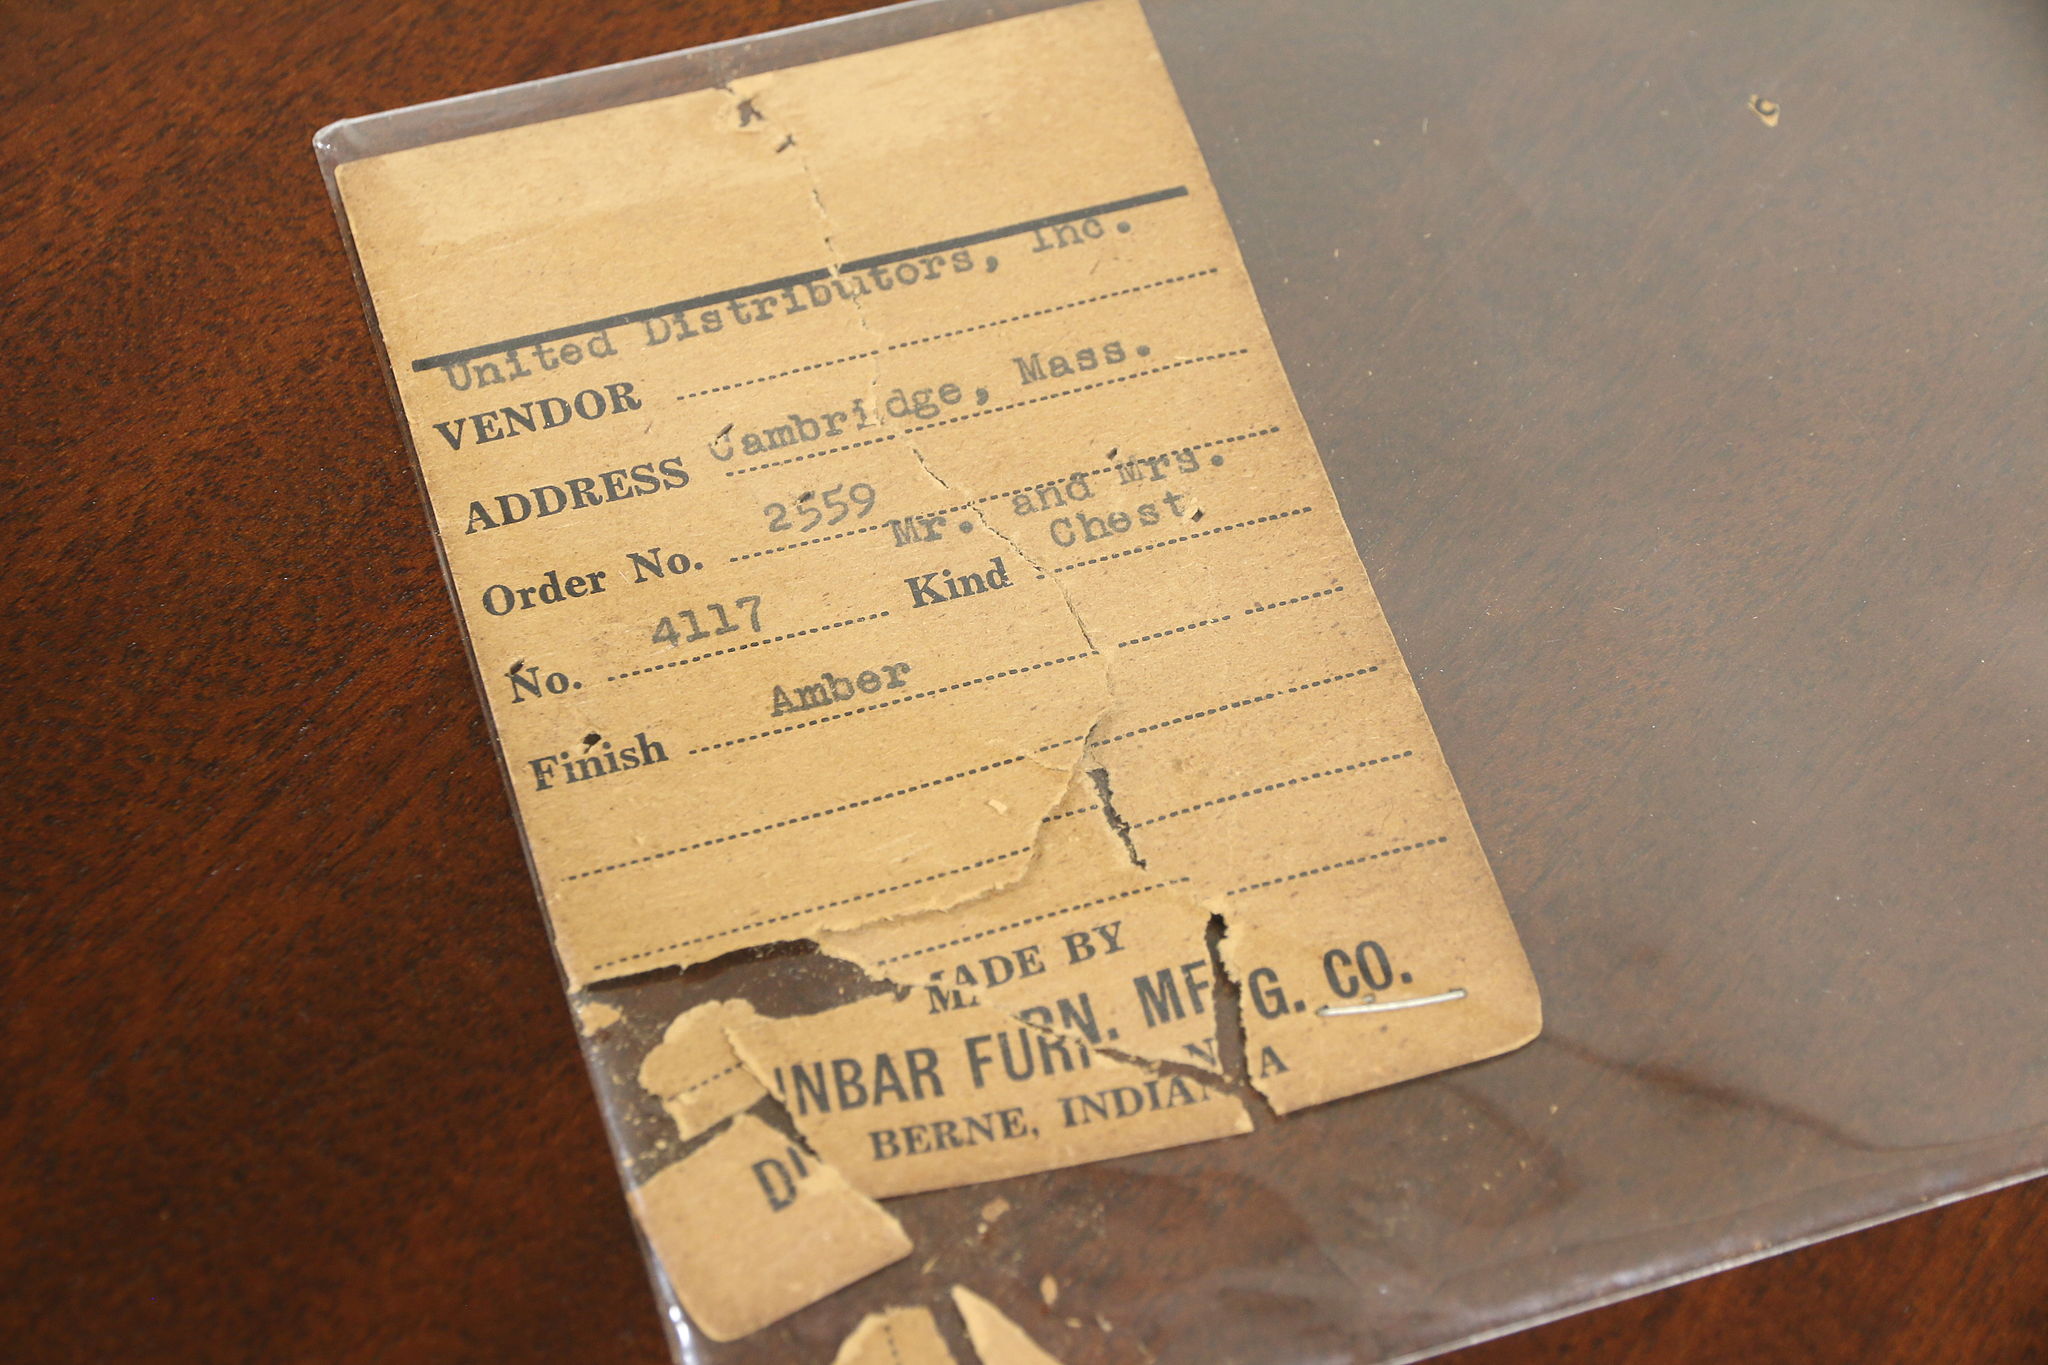 United Distributors, Inc.
VENDOR
ADDRESS Cambridge, Mass.
Order No. 2559
Mr. and Mrs.
No. 4117 Kind Chest
Finish Amber
MADE BY
DUNBAR FURN. MFG. CO.
BERNE, INDIANA